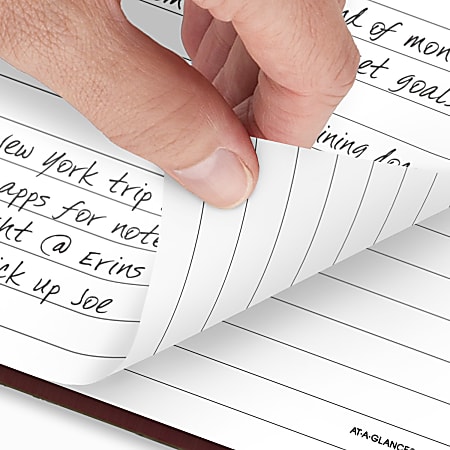 d of mon
et goals
ining
ew York trip
apps for note
ht @ Erins
ck up Joe
AT-A-GLANCE